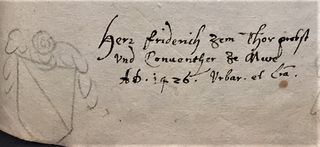 Herr Friderich zem Thor probst
Vnd Conventher Ze Mure
AD. 1426. Vrbar. et Lra.